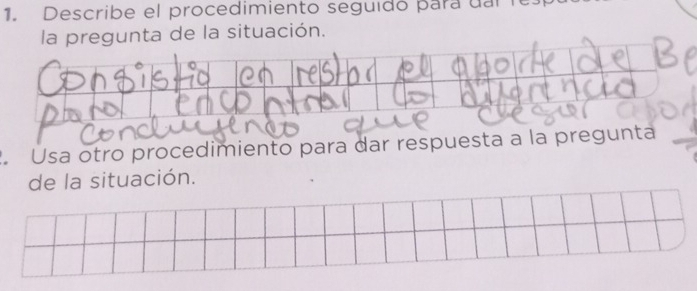 1. Describe el procedimiento seguido para dar
la pregunta de la situación.
Consistio en restar el aporte de Be
para encontrar la diferencia
concluyendo que
2. Usa otro procedimiento para dar respuesta a la pregunta
de la situación.